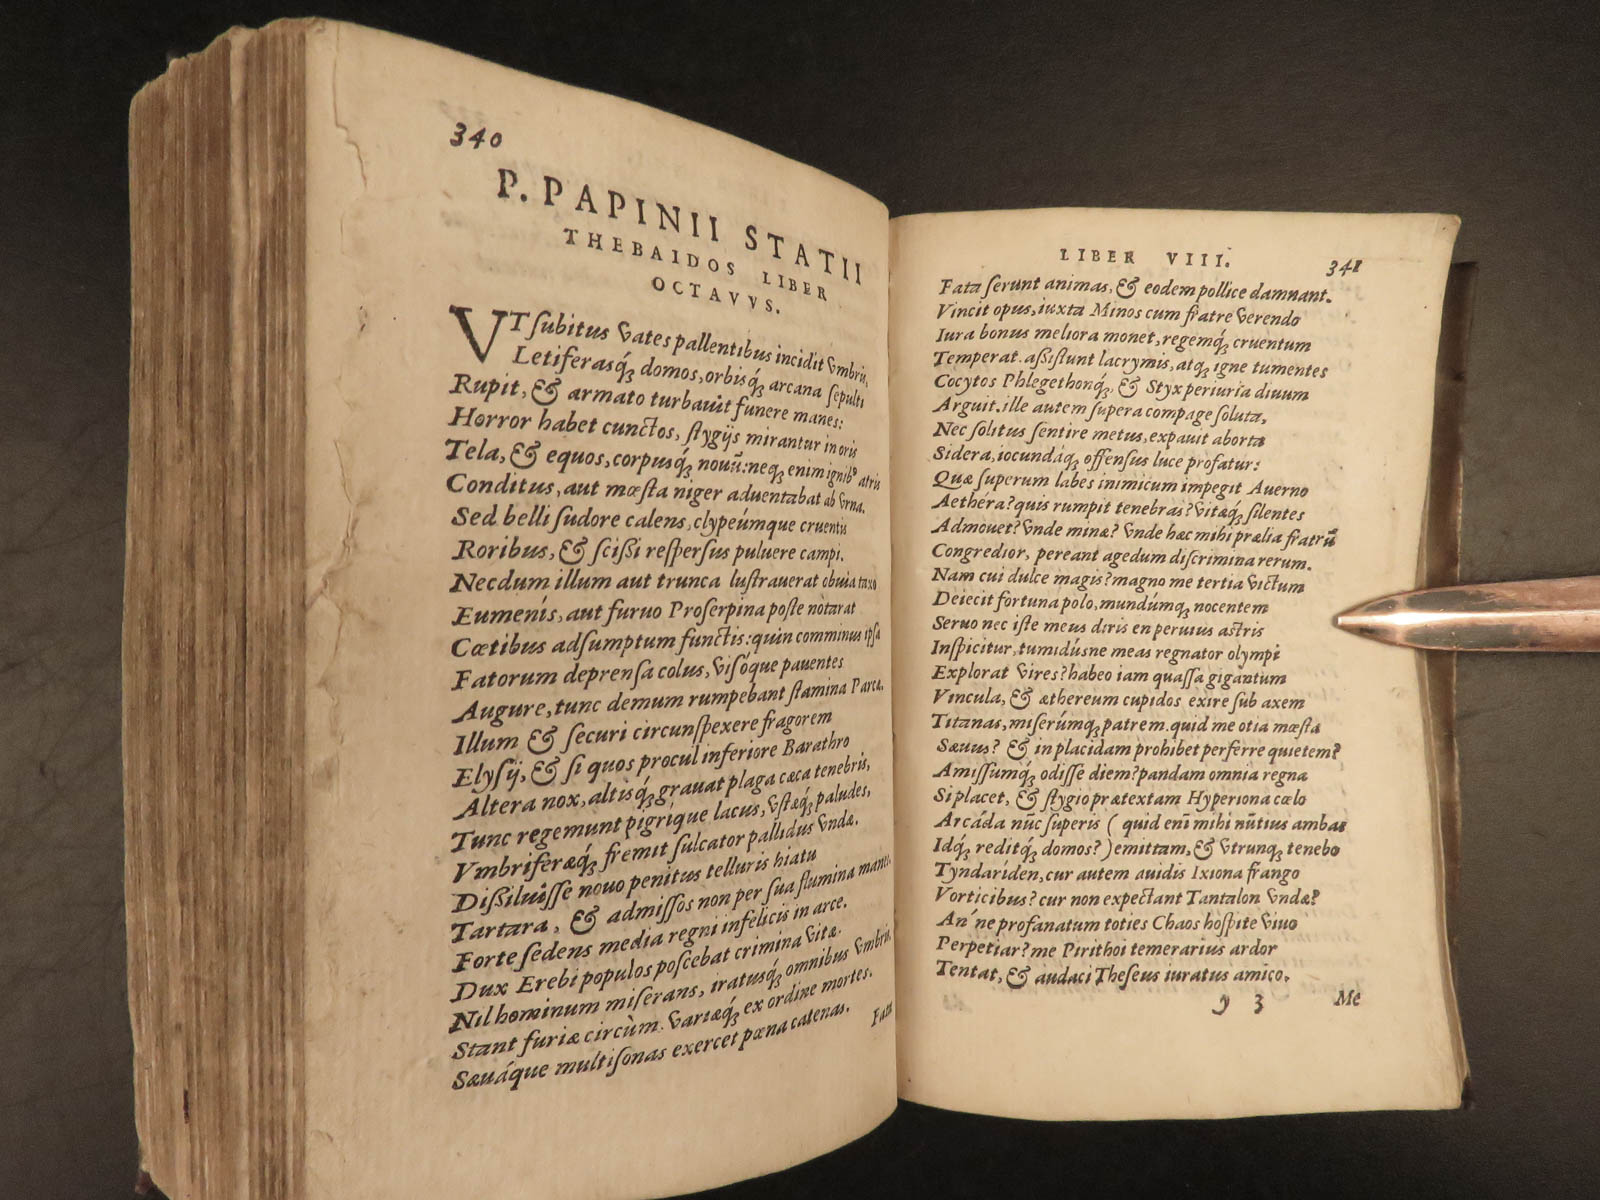 340
P. PAPINII STATII
THEBAIDOS LIBER
OCTAVVS.
VT ſubitus vates pallentibus incidit vmbris,
Letiferasq́; domos, orbisq́; arcana ſepulti
Rupit, & armato turbauit funere manes:
Horror habet cunctos, ſtygijs mirantur in oris
Tela, & equos, corpusq́; nouū: neq; enim ignib⁹ atris
Conditus, aut mœſta niger aduentabat ab vrna.
Sed belli ſudore calens, clypeúmque cruentis
Roribus, & ſciſſi reſperſus puluere campi.
Necdum illum aut trunca luſtrauerat obuia taxo
Eumenis, aut furuo Proſerpina poſte notarat
Cœtibus adſumptum functis: quin comminus ipſa
Fatorum deprenſa colus, viſóque pauentes
Augure, tunc demum rumpebant ſtamina Parcæ.
Illum & ſecuri circunſpexere fragorem
Elyſij, & ſi quos procul inferiore Barathro
Altera nox, altisq́; grauat plaga cæca tenebris,
Tunc regemunt pigríque lacus, vſtæq́; paludes,
Vmbriferæq́; fremit ſulcator pallidus vndæ.
Diſſiluiſſe nouo penitus telluris hiatu
Tartara, & admiſſos non per ſua flumina manes.
Forte ſedens media regni infelicis in arce.
Dux Erebi populos poſcebat crimina vitæ.
Nil hominum miſerans, iratusq́; omnibus vmbris.
Stant furiæ circùm. variæq́; ex ordine mortes.
Sæuáque multiſonas exercet pœna catenas.
Fata
LIBER VIII.
341
Fata ferunt animas, & eodem pollice damnant.
Vincit opus, iuxta Minos cum fratre verendo
Iura bonus meliora monet, regemq́; cruentum
Temperat. aſſiſtunt lacrymis, atq; igne tumentes
Cocytos Phlegethonq́;, & Styx periuria diuum
Arguit. ille autem ſupera compage ſoluta,
Nec ſolitus ſentire metus, expauit aborta
Sidera, iocundaq́; offenſus luce profatur:
Quæ ſuperum labes inimicum impegit Auerno
Aethéra? quis rumpit tenebras? vitæq́; ſilentes
Admouet? vnde minæ? vnde hæc mihi prælia fratrū
Congredior, pereant agedum diſcrimina rerum.
Nam cui dulce magis? magno me tertia victum
Deiecit fortuna polo, mundúmq; nocentem
Seruo nec iſte meus diris en peruius aſtris
Inſpicitur, tumidúsne meas regnator olympi
Explorat vires? habeo iam quaſſa gigantum
Vincula, & æthereum cupidos exire ſub axem
Titanas, miſerúmq; patrem. quid me otia mœſta
Sæuus? & in placidam prohibet perferre quietem?
Amiſſumq́; odiſſe diem? pandam omnia regna
Si placet, & ſtygio prætextam Hyperiona cœlo
Arcáda nūc ſuperis ( quid enī mihi nūtius ambas
Idq́; reditq́; domos? ) emittam, & vtrunq; tenebo
Tyndariden, cur autem auidis Ixiona frango
Vorticibus? cur non expectant Tantalon vndæ?
An' ne profanatum toties Chaos hoſpite viuo
Perpetiar? me Pirithoi temerarius ardor
Tentat, & audaci Theſeus iuratus amico.
y 3
Me